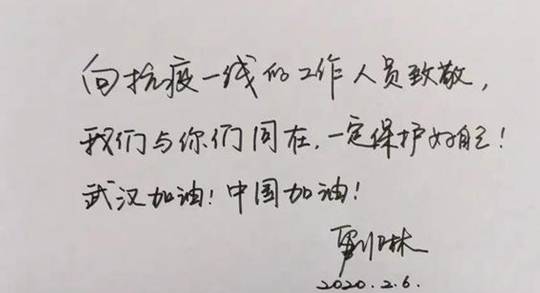 向抗疫一线的工作人员致敬，
我们与你们同在，一定保护好自己！
武汉加油！中国加油！
刘琳
2020.2.6.